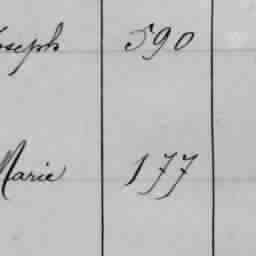 Joseph 590
Marie 177